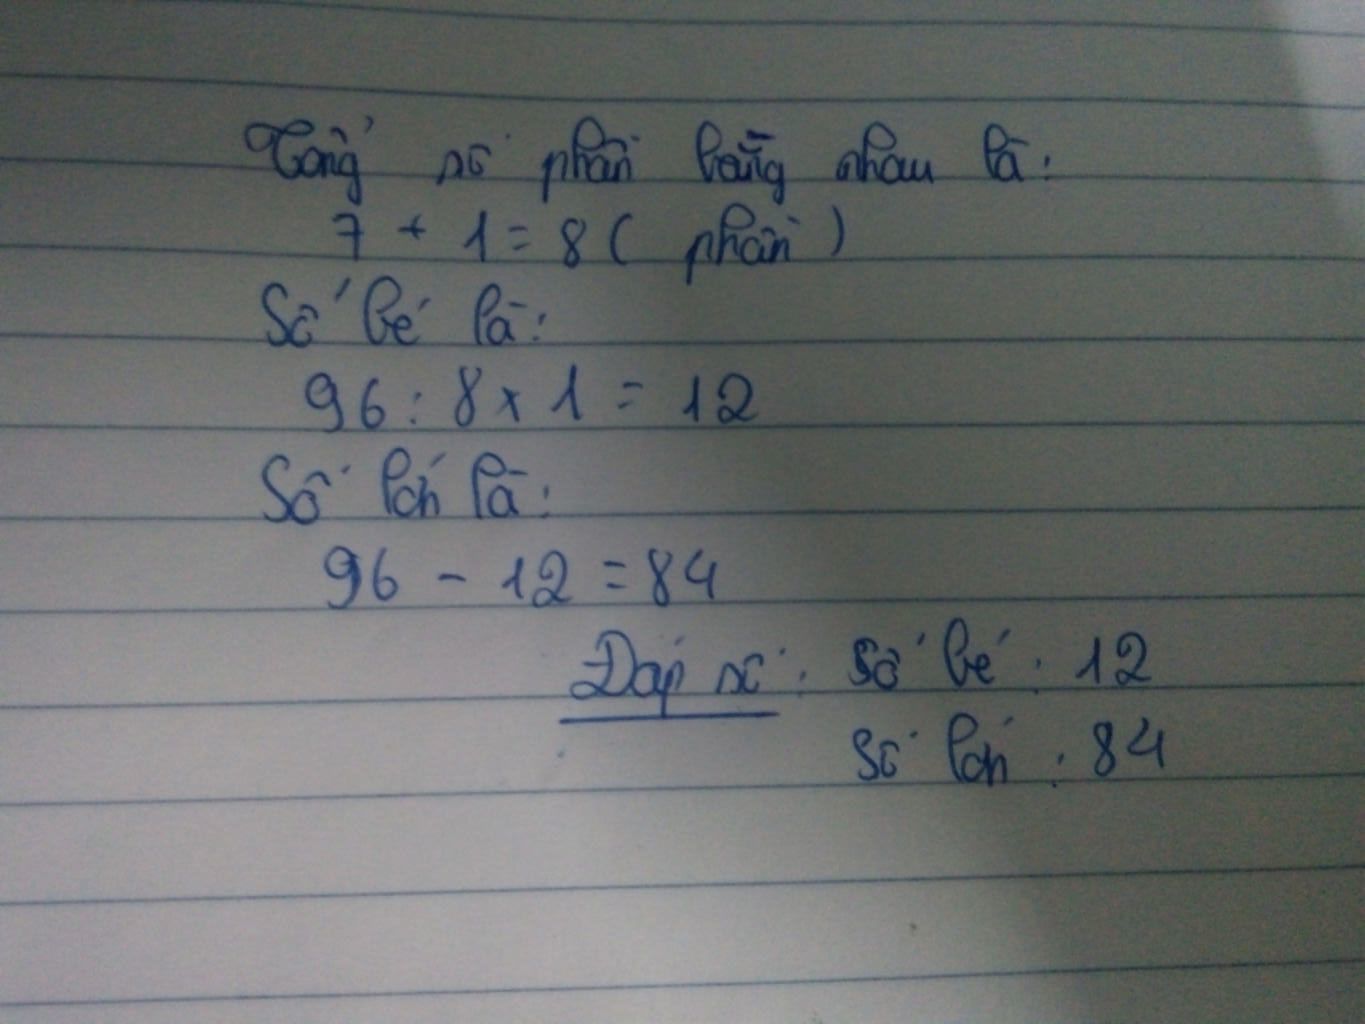 Tổng số phần bằng nhau là:
7 + 1 = 8 ( phần )
Số bé là:
96 : 8 x 1 = 12
Số lớn là:
96 - 12 = 84
Đáp số: Số bé : 12
Số lớn : 84